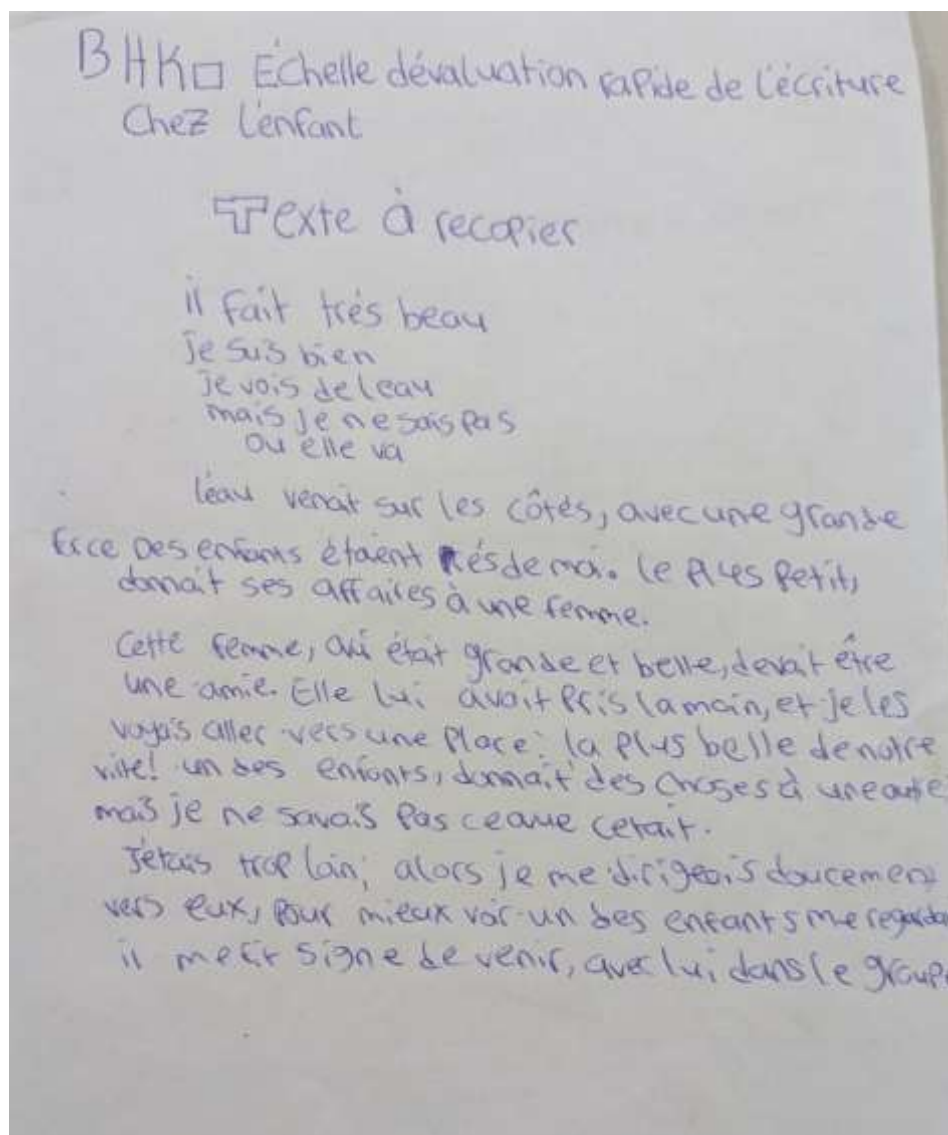 BHK□ Échelle dévaluation rapide de l'écriture
Chez l'enfant
Texte à recopier
il fait trés beau
je suis bien
je vois de leau
mais je ne sais pas
ou elle va
léau venait sur les côtés, avec une grande
force Des enfants étaient près de moi. le plus petit,
donnait ses affaires à une femme.
Cette femme, qui était grande et belle, devait être
une amie. Elle lui avait pris la main, et je les
voyais aller vers une place: la plus belle de notre
ville! un des enfants, donnait des choses à une autre
mais je ne savais pas ceque cetait.
J'étais trop loin; alors je me dirigeais doucement
vers eux, pour mieux voir un des enfants me regarda
il me fit signe de venir, avec lui dans le groupe